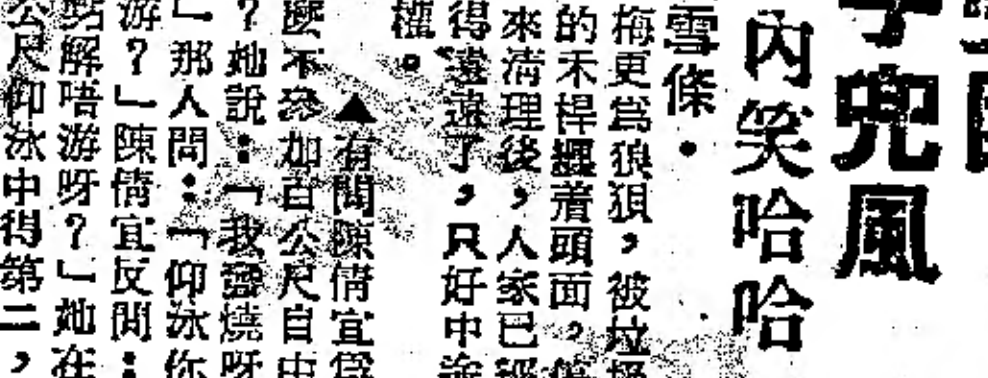 子兜風
內笑哈哈
雪條．
梅更爲狼狽，被垃圾
的禾桿纒着頭面，
來清理後，人家已經
得遠遠了，只好中途
權。
▲有問陳倩宜爲
麼不參加百公尺自由
？她說：「我發燒呀
」那人問：「仰泳你
游？」陳倩宜反問：
點解唔游呀？」她在
公尺仰泳中得第二，